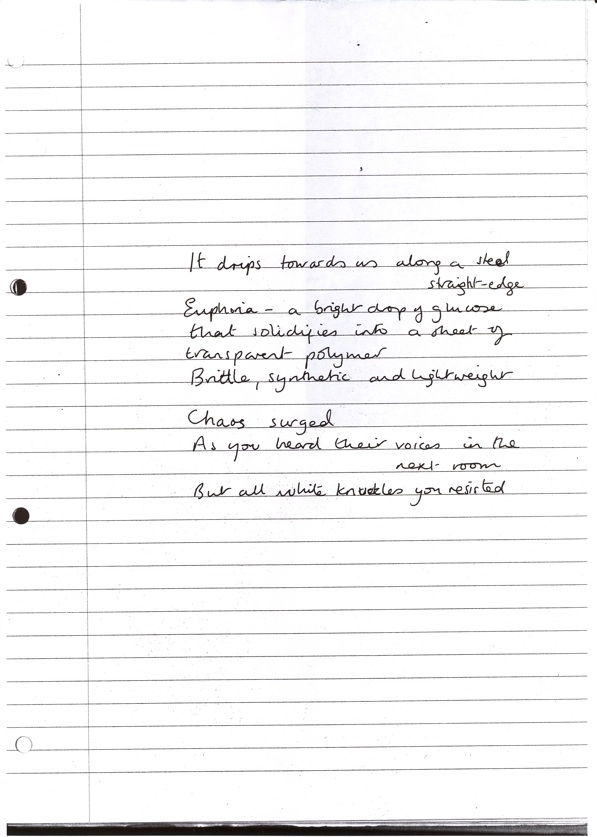 It drips towards us along a steel
straight-edge
Euphoria - a bright drop of glucose
that solidifies into a sheet of
transparent polymer
Brittle, synthetic and lightweight
Chaos surged
As you heard their voices in the
next room
But all white knuckles you resisted